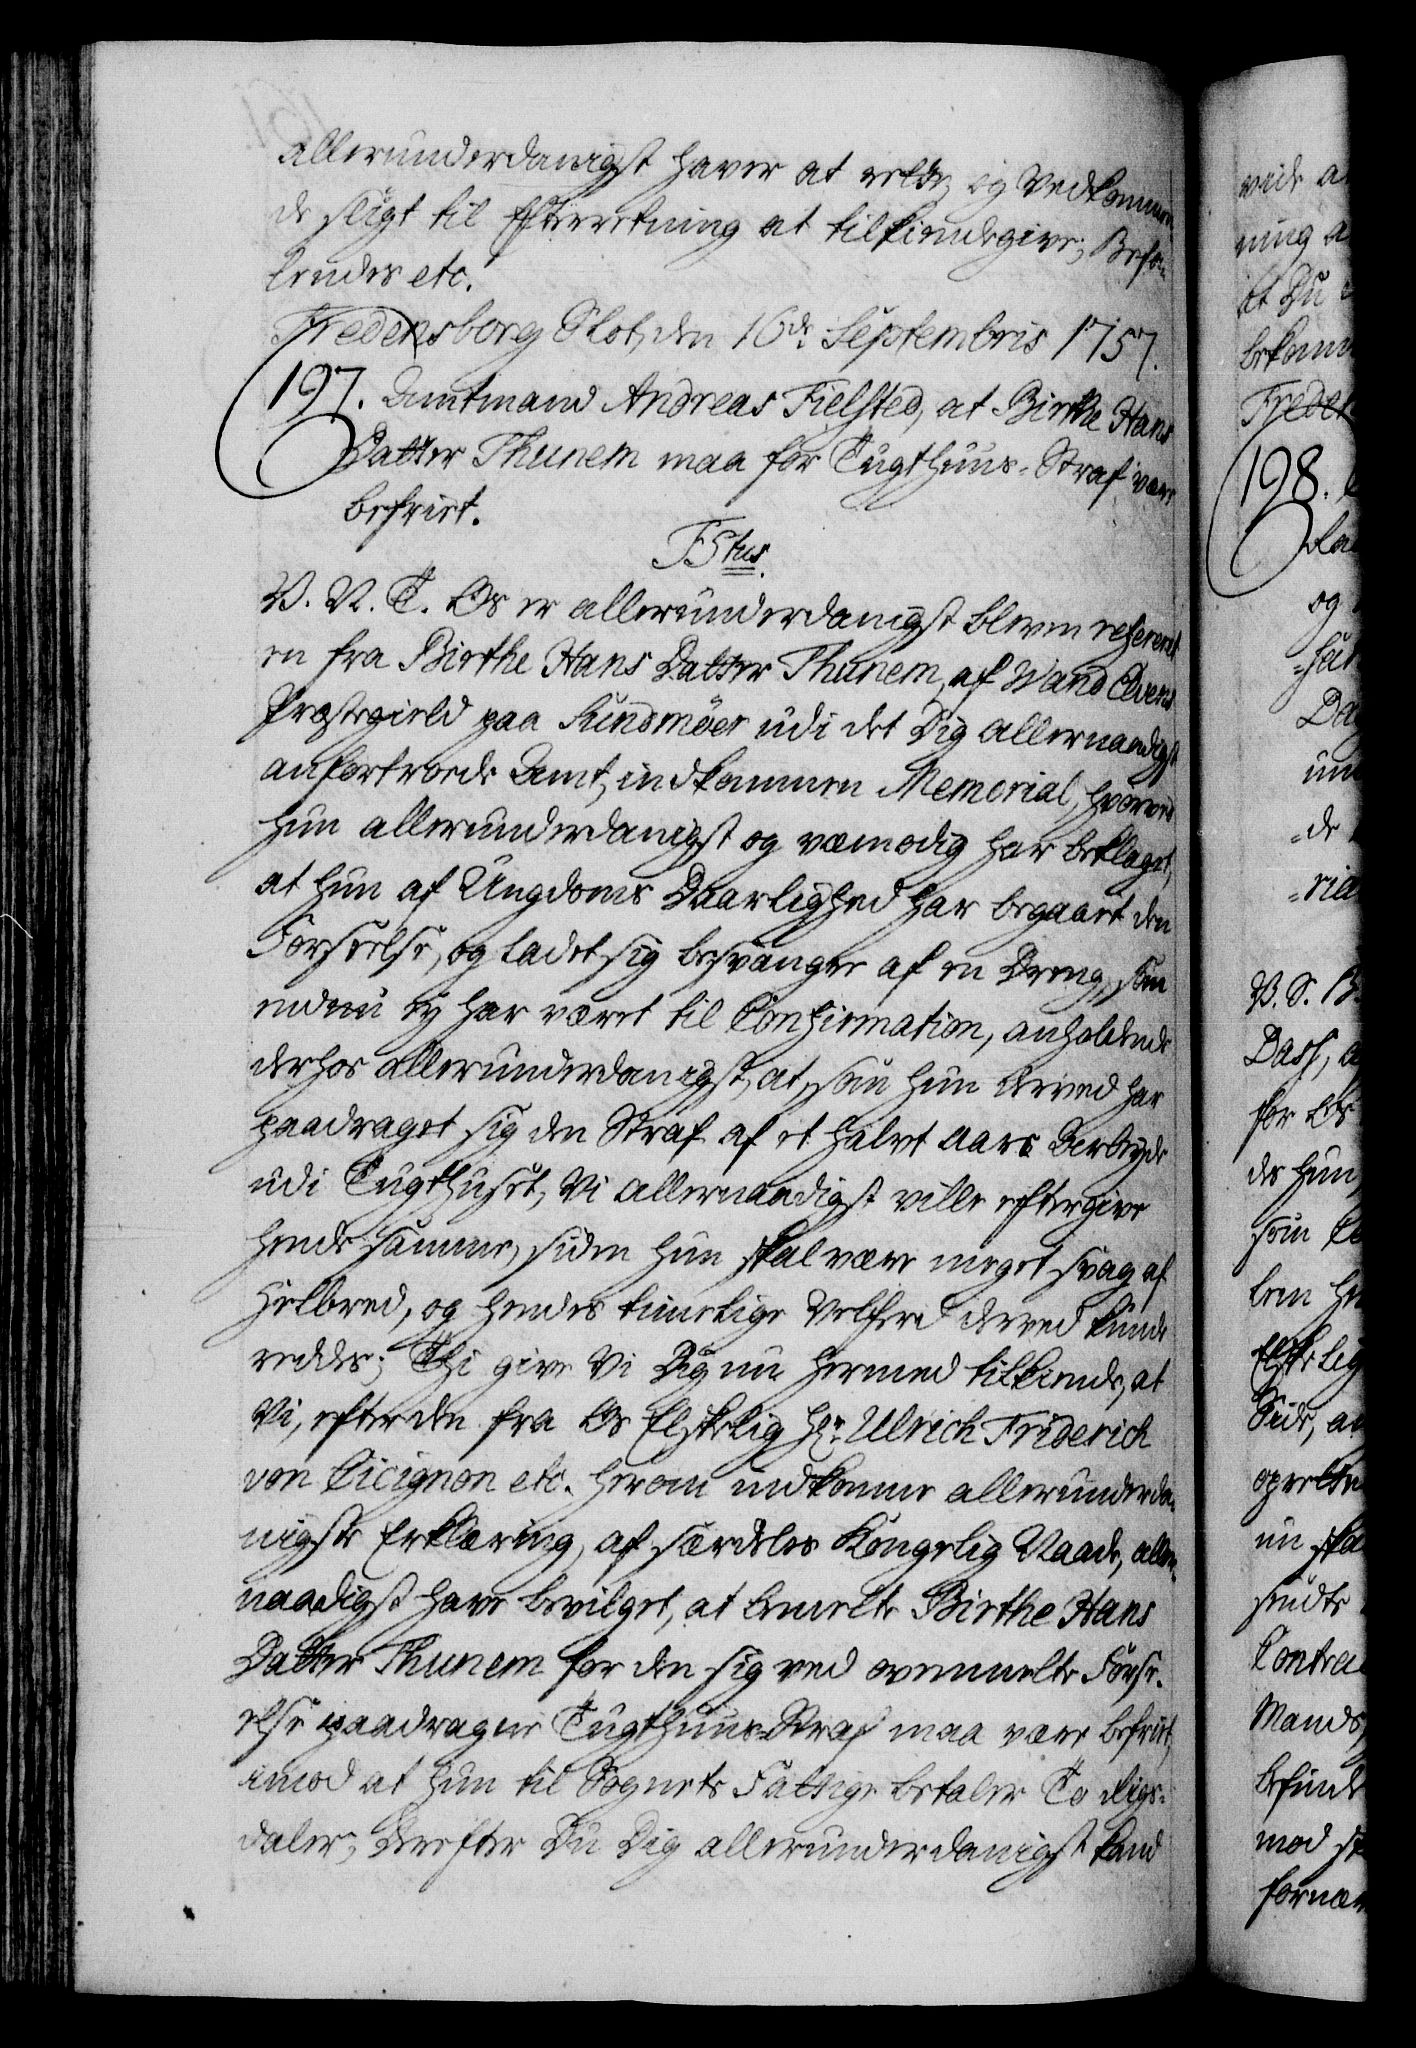 allerunderdanigst haver at rette, og Vedkommen
de sligt til Efterretning at tilkiendegive; Befa-
lendes etc.
Fredensborg Slot, den 16de Septembris 1757.
197. Amtmand Andreas Fielsted, at Birthe Hans
Datter Thunem maa for Tugthuus-Straf være
befriet.
F5tus.
V. N. T. Os er allerunderdanigst bleven refereret
en fra Birthe Hans Datter Thunem, af Wand Elvens
Præstegield paa Sundmöer udi det Dig allernaadigst
anfortroede Amt, indkommen Memorial, hvorved
hun allerunderdanigst og vemodig har beklaget,
at hun af Ungdoms Daarlighed har begaaet den
Forseelse, og ladet sig besvangre af en Dreng, som
endnu ey har været til Confirmation, anholdende
derhos allerunderdanigst, at, som hun derved har
paadraget sig den Straf af et halvt Aars Arbeyde
udi Tugthuset, Vi allernaadigst ville eftergive
hende samme, siden hun skal være meget svag af
Helbred, og hendes timelige Velferd derved kunde
reddes; Thi give Vi Dig nu hermed tilkiende, at
Vi, efter den fra Os Elskelig Hr. Ulrich Friderich
von Cicignon etc. herom indkomne allerunderda-
nigste Erklæring, af særdeles Kongelig Naade, aller-
naadigst have bevilget, at bemelte Birthe Hans
Datter Thunem for den sig ved ovenmelte Forse-
else paadragne Tugthuus-Straf maa være befriet,
imod at hun til Sognets Fattige betaler To Rigs-
daler; Derefter Du Dig allerunderdanigst kand
vide a
ning a
at Du
bekom
Freden
198.
og
Da
-de
-rid
V. S. B
Dass, a
for Os
de hun
som
lem he
Elskelig
Side, a
oprette
nu ska
sendte
Contra
Mands
befinde
mod
fornæ